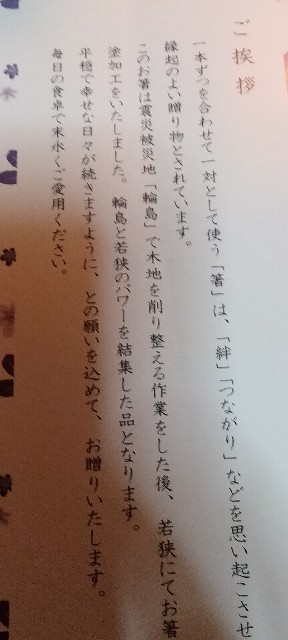 ご挨拶
一本ずつを合わせて一対として使う「箸」は、「絆」「つながり」などを思い起こさせ
縁起のよい贈り物とされています。
このお箸は震災被災地「輪島」で木地を削り整える作業をした後、若狭にてお箸
塗加工をいたしました。輪島と若狭のパワーを結集した品となります。
平穏で幸せな日々が続きますように、との願いを込めて、お贈りいたします。
毎日の食卓で末永くご愛用ください。